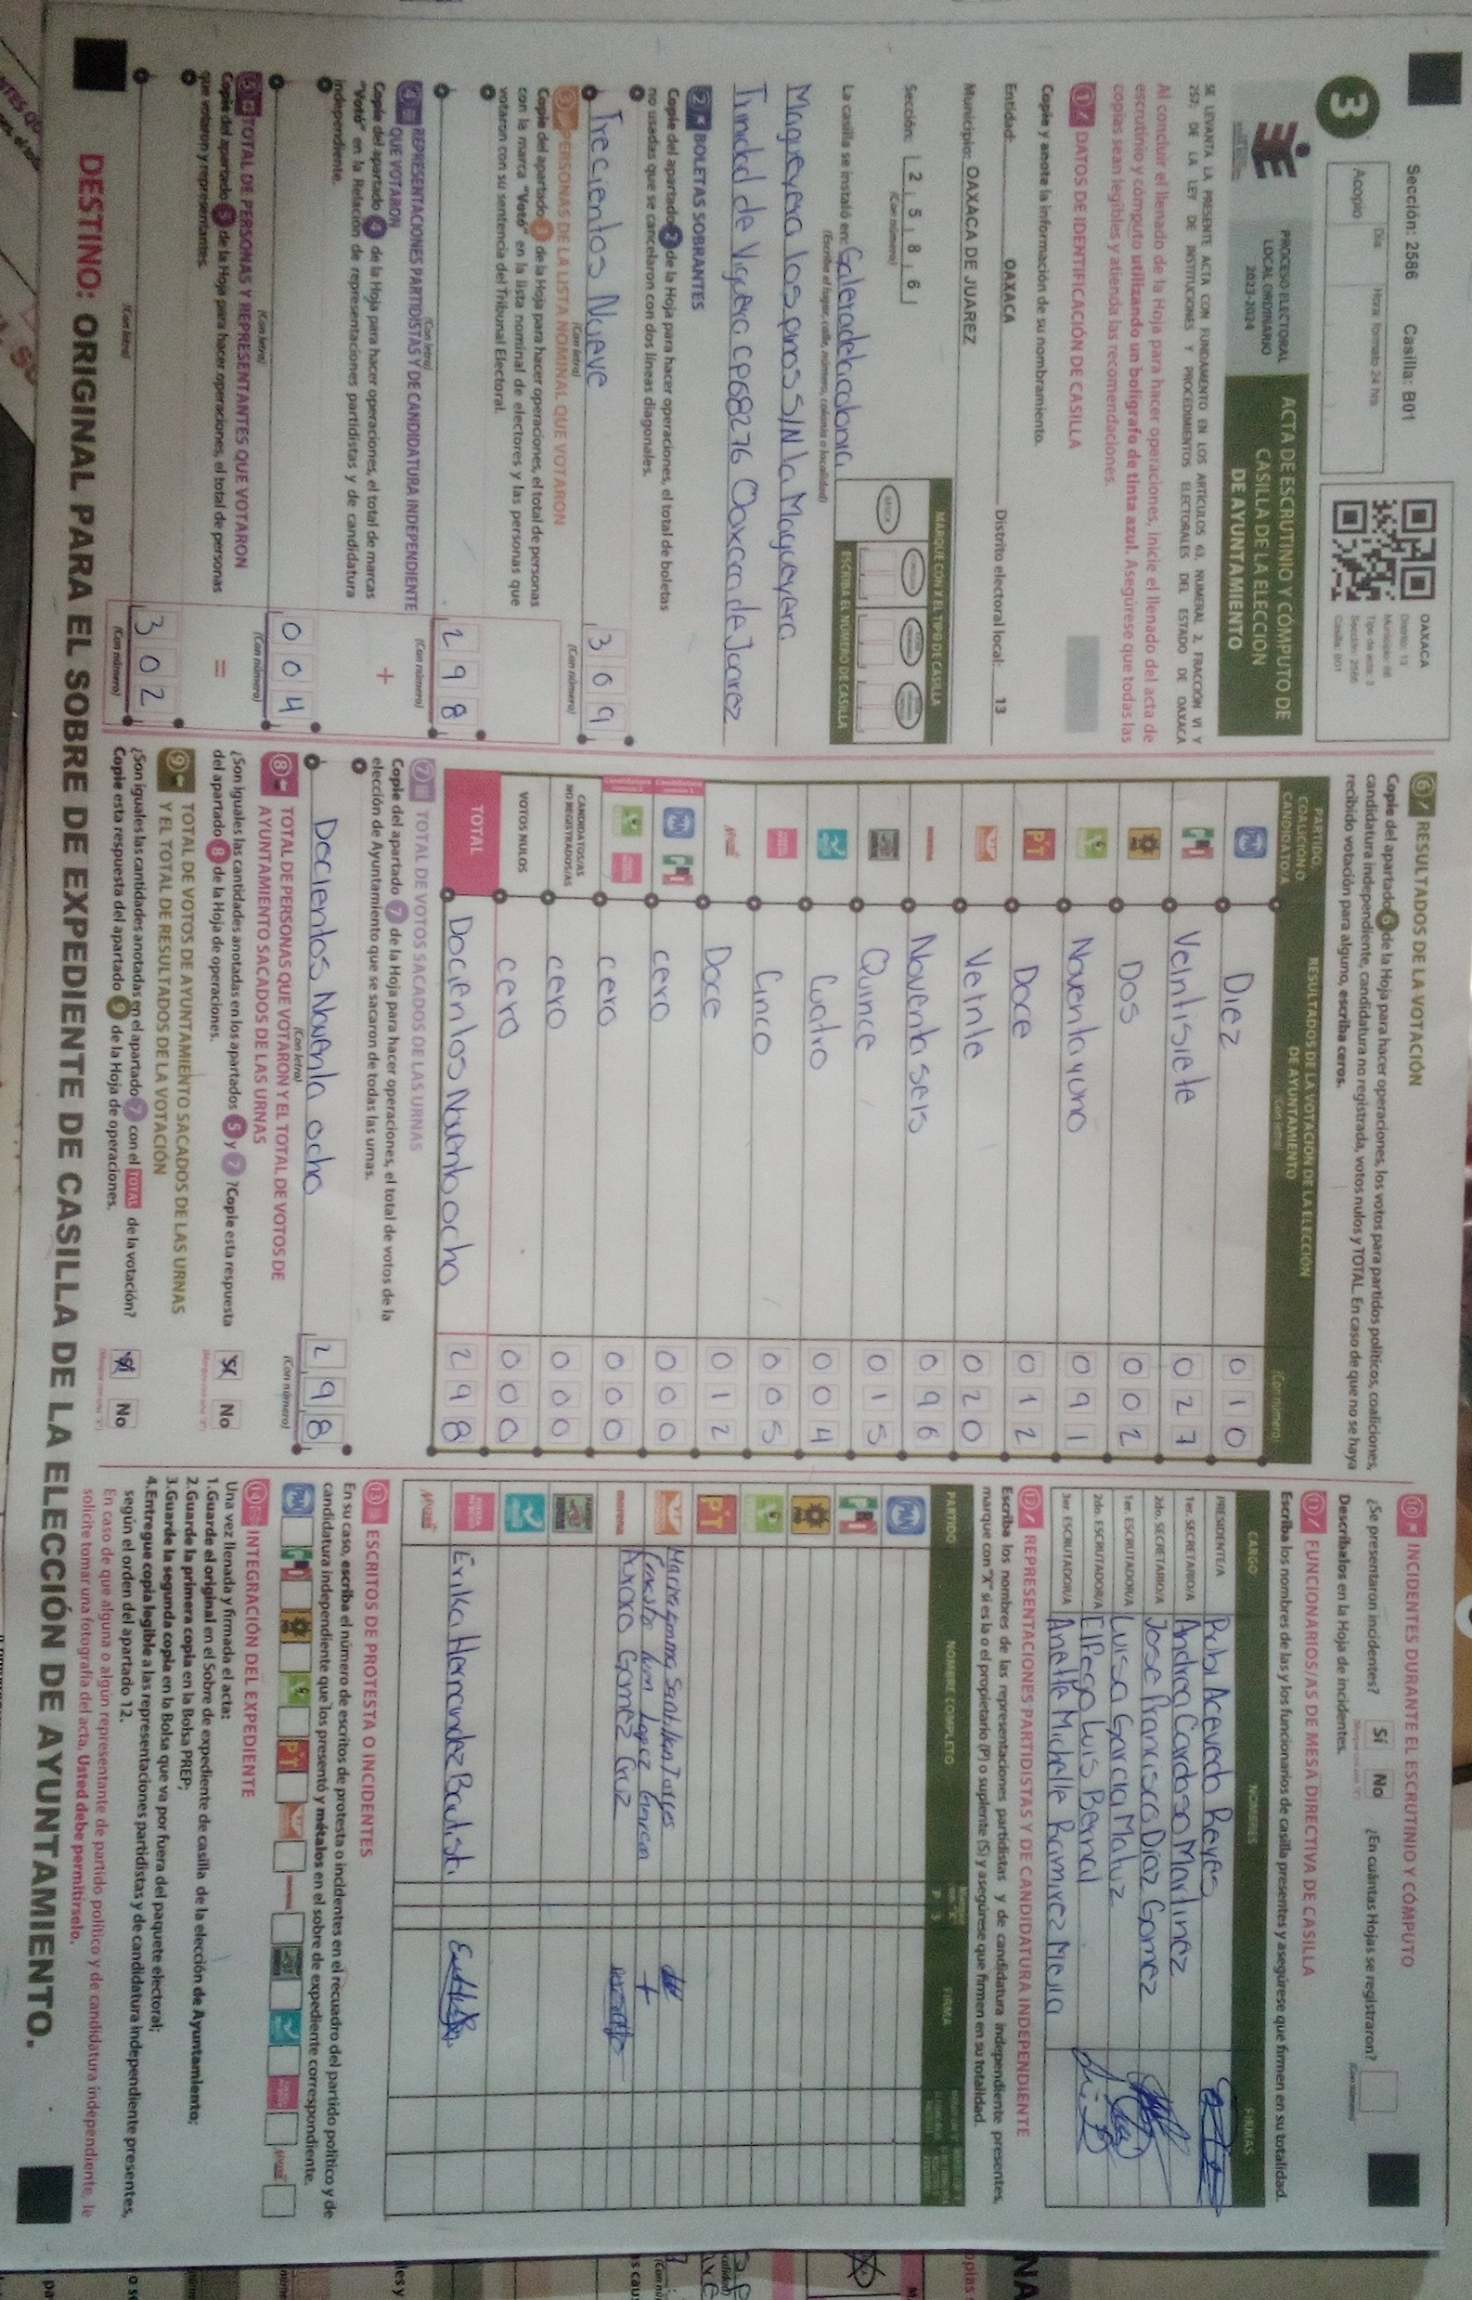 Sección: 2586 Casilla: B01
3
Día
Hora: formato 24 hrs
Acopio
OAXACA
Distrito: 13
Tipo de acta: 3
Sección: 2586
Casilla: B01
PROCESO ELECTORAL
LOCAL ORDINARIO
2023-2024
ACTA DE ESCRUTINIO Y CÓMPUTO DE
CASILLA DE LA ELECCIÓN
DE AYUNTAMIENTO
SE LEVANTA LA PRESENTE ACTA CON FUNDAMENTO EN LOS ARTÍCULOS 63, NUMERAL 2, FRACCIÓN VI Y
257; DE LA LEY DE INSTITUCIONES Y PROCEDIMIENTOS ELECTORALES DEL ESTADO DE OAXACA
Al concluir el llenado de la Hoja para hacer operaciones, inicie el llenado del acta de
escrutinio y cómputo utilizando un bolígrafo de tinta azul. Asegúrese que todas las
copias sean legibles y atienda las recomendaciones.
1 DATOS DE IDENTIFICACIÓN DE CASILLA
Copie y anote la información de su nombramiento.
Entidad: OAXACA Distrito electoral local: 13
Municipio: OAXACA DE JUAREZ
Sección: 2 5 8 6
(Con número)
MARQUE CON X EL TIPO DE CASILLA
BÁSICA
ESCRIBA EL NÚMERO DE CASILLA
La casilla se instaló en: Galera de la colonia
(Escriba el lugar, calle, número, colonia o localidad)
Magueyera los pinos S/N la Magueyera
Trinidad de Viguera CP68276 Oaxaca de Juarez
2 BOLETAS SOBRANTES
Copie del apartado 2 de la Hoja para hacer operaciones, el total de boletas
no usadas que se cancelaron con dos líneas diagonales.
Trecientos Nueve 3 0 9
(Con letra) (Con número)
3 PERSONAS DE LA LISTA NOMINAL QUE VOTARON
Copie del apartado 3 de la Hoja para hacer operaciones, el total de personas
con la marca "Votó" en la lista nominal de electores y las personas que
votaron con su sentencia del Tribunal Electoral.
2 9 8
(Con letra) (Con número)
4 REPRESENTACIONES PARTIDISTAS Y DE CANDIDATURA INDEPENDIENTE
QUE VOTARON
Copie del apartado 4 de la Hoja para hacer operaciones, el total de marcas
"Votó" en la Relación de representaciones partidistas y de candidatura
independiente.
+
0 0 4
(Con letra) (Con número)
5 TOTAL DE PERSONAS Y REPRESENTANTES QUE VOTARON
Copie del apartado 5 de la Hoja para hacer operaciones, el total de personas
que votaron y representantes.
=
3 0 2
(Con letra) (Con número)
6 RESULTADOS DE LA VOTACIÓN
Copie del apartado 6 de la Hoja para hacer operaciones, los votos para partidos políticos, coaliciones,
candidatura independiente, candidatura no registrada, votos nulos y TOTAL. En caso de que no se haya
recibido votación para alguno, escriba ceros.
PARTIDO,
COALICIÓN O
CANDIDATO/A
RESULTADOS DE LA VOTACIÓN DE LA ELECCIÓN
DE AYUNTAMIENTO
(Con letra) (Con número)
PAN Diez 0 1 0
PRI Veintisiete 0 2 7
Dos 0 0 2
Noventa y uno 0 9 1
PT Doce 0 1 2
Veinte 0 2 0
morena Noventa seis 0 9 6
Quince 0 1 5
Cuatro 0 0 4
Cinco 0 0 5
Doce 0 1 2
PAN PRI cero 0 0 0
cero 0 0 0
CANDIDATOS/AS
NO REGISTRADOS/AS cero 0 0 0
VOTOS NULOS cero 0 0 0
TOTAL Docientos Noventa ocho 2 9 8
7 TOTAL DE VOTOS SACADOS DE LAS URNAS
Copie del apartado 7 de la Hoja para hacer operaciones, el total de votos de la
elección de Ayuntamiento que se sacaron de todas las urnas.
Docientos Noventa ocho 2 9 8
(Con letra) (Con número)
8 TOTAL DE PERSONAS QUE VOTARON Y EL TOTAL DE VOTOS DE
AYUNTAMIENTO SACADOS DE LAS URNAS
¿Son iguales las cantidades anotadas en los apartados 5 y 7? Copie esta respuesta
del apartado 8 de la Hoja de operaciones.
Sí No
9 TOTAL DE VOTOS DE AYUNTAMIENTO SACADOS DE LAS URNAS
Y EL TOTAL DE RESULTADOS DE LA VOTACIÓN
¿Son iguales las cantidades anotadas en el apartado 7 con el TOTAL de la votación?
Copie esta respuesta del apartado 9 de la Hoja de operaciones.
Sí No
10 INCIDENTES DURANTE EL ESCRUTINIO Y CÓMPUTO
¿Se presentaron incidentes? Sí No ¿En cuántas Hojas se registraron?
Descríbalos en la Hoja de incidentes.
11 FUNCIONARIOS/AS DE MESA DIRECTIVA DE CASILLA
Escriba los nombres de las y los funcionarios de casilla presentes y asegúrese que firmen en su totalidad.
CARGO NOMBRES FIRMAS
PRESIDENTE/A Rubi Acevedo Reyes
1er. SECRETARIO/A Andrea Cardoso Martinez
2do. SECRETARIO/A Jose Francisco Diaz Gomez
1er. ESCRUTADOR/A Luisa Garcia Matuz
2do. ESCRUTADOR/A Luis Bernal
3er. ESCRUTADOR/A Anette Michelle Ramirez Mejia
12 REPRESENTACIONES PARTIDISTAS Y DE CANDIDATURA INDEPENDIENTE
Escriba los nombres de las representaciones partidistas y de candidatura independiente presentes,
marque con "X" si es la o el propietario (P) o suplente (S) y asegúrese que firmen en su totalidad.
PARTIDO NOMBRE COMPLETO P S FIRMA
PAN
PRI
PT
Lopez Garcia
morena Aurora Gomez Cruz
Erika Hernandez Bautista
13 ESCRITOS DE PROTESTA O INCIDENTES
En su caso, escriba el número de escritos de protesta o incidentes en el recuadro del partido político y de
candidatura independiente que los presentó y métalos en el sobre de expediente correspondiente.
PAN PRI PT morena
14 INTEGRACIÓN DEL EXPEDIENTE
Una vez llenada y firmada el acta:
1.Guarde el original en el Sobre de expediente de casilla de la elección de Ayuntamiento;
2.Guarde la primera copia en la Bolsa PREP;
3.Guarde la segunda copia en la Bolsa que va por fuera del paquete electoral;
4.Entregue copia legible a las representaciones partidistas y de candidatura independiente presentes,
según el orden del apartado 12.
En caso de que alguna o algún representante de partido político y de candidatura independiente, le
solicite tomar una fotografía del acta, Usted debe permitírselo.
DESTINO: ORIGINAL PARA EL SOBRE DE EXPEDIENTE DE CASILLA DE LA ELECCIÓN DE AYUNTAMIENTO.